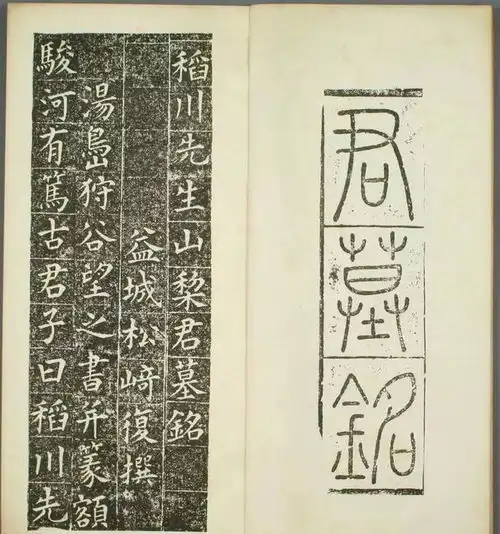 君墓銘
稻川先生山棃君墓銘
益城松﨑復撰
湯島狩谷望之書并篆額
駿河有篤古君子曰稻川先